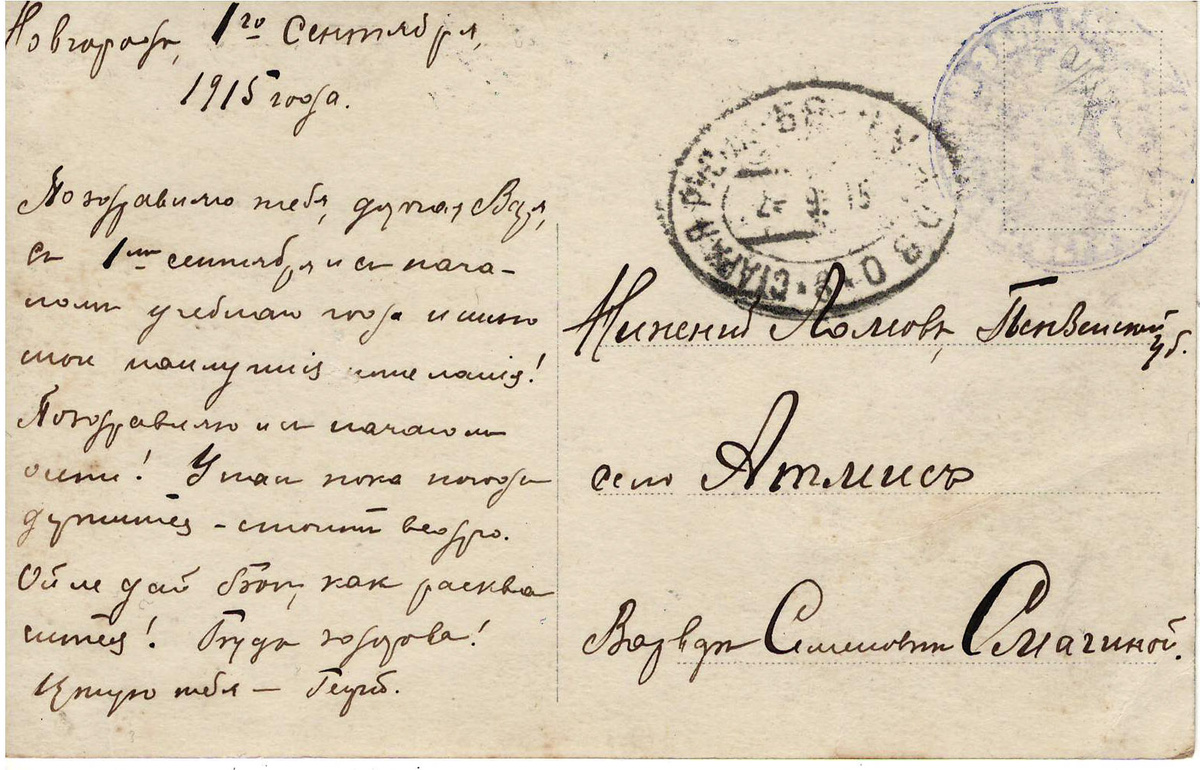 Новгородъ, 1го Сентября,
1915 года.
Поздравляю тебя, дорогая Варя,
съ 1мъ сентября и съ нача-
ломъ учебнаго года и шлю
мои наилучшія пожеланія!
Поздравляю и съ началомъ
осени! У насъ пока погода
держится - стоитъ ведро.
Ой не дай Богъ, как расква
сится! Будь здорова!
Цѣлую тебя —
СТАРАЯ РУССА
9 15
Нижній Ломовъ, Пензенской
губ.
село Атмисъ
Варварѣ Семеновнѣ Смагиной.